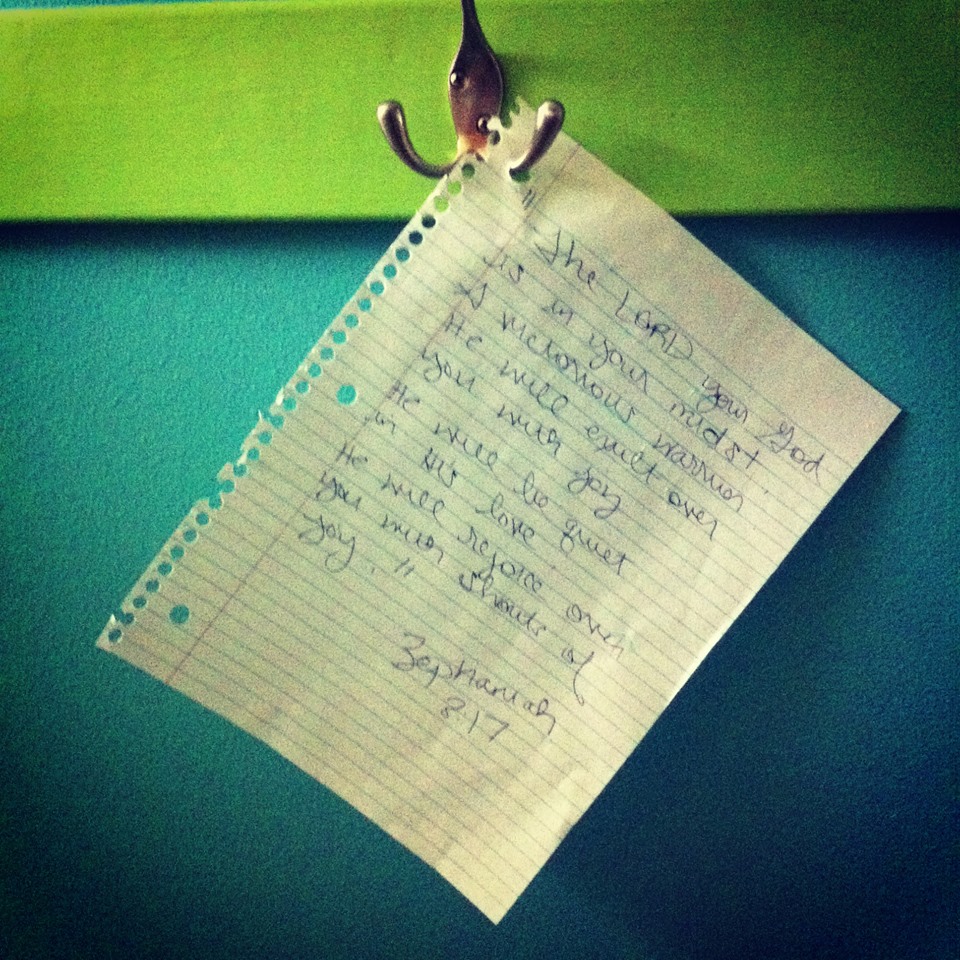 "The LORD your God
is in your midst.
A victorious warrior
He will exult over
you with joy
He will be quiet
in His love.
He will rejoice over
you with shouts of
joy."
Zephaniah
3:17